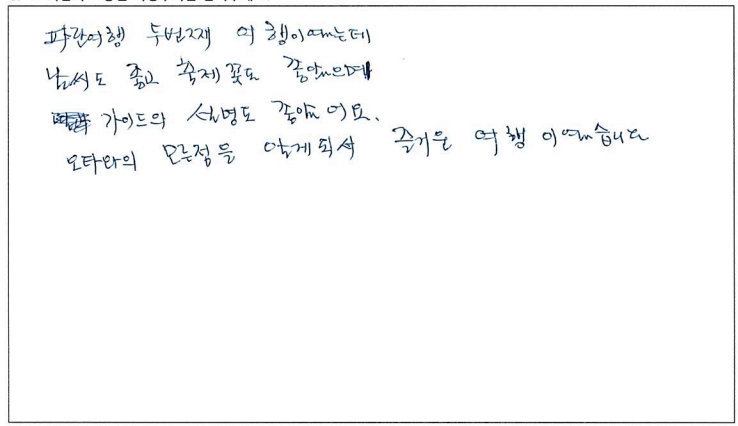 파란여행 두번째 여행이였는데
날씨도 좋고 축제 꽃도 좋았으며
가이드의 설명도 좋았어요.
오타와의 모든점을 알게되서 즐거운 여행이였습니다